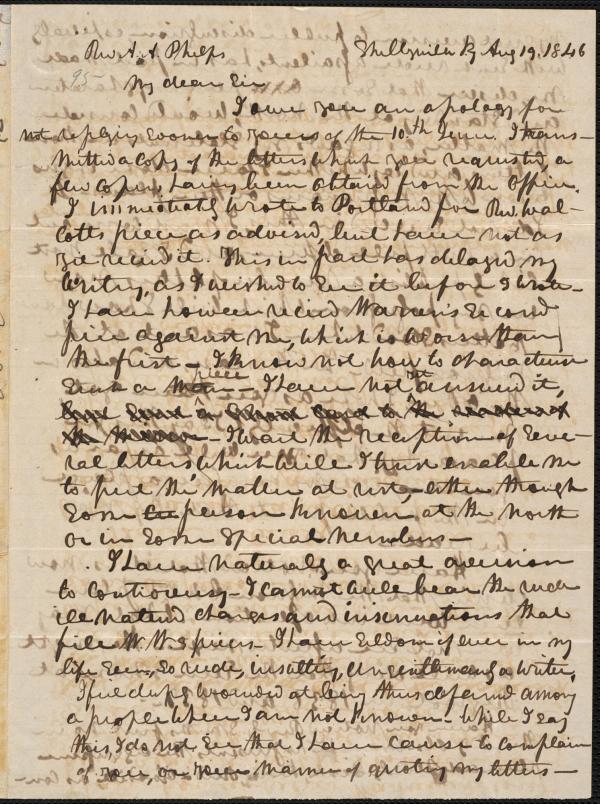 Rev A. A. Phelps Shelbyville Ky Aug 19. 1846
95
My dear Sir
I owe you an apology for
not replying sooner to yours of the 10th June. I trans-
mitted a copy of the letters which you requested, a
few copies having been obtained from the office.
I immediately wrote to Portland for Rev. Wal-
cotts piece as advised, but have not as
yet recvd it. This in part has delayed my
writing, as I wished to see it before I wrote.
I have however recvd Warren's second
piece against me, which is worse than
the first - I know not how to characterise
such a piece - I have not yet answered it,
- I wait the reception of seve-
ral letters which will I trust enable me
to put the matter at rest - either through
some person known at the North
or in some special numbers -
I have naturally a great aversion
to controversy - I cannot well bear the rude
ill natured charges and insinuations that
fill W. W's pieces - I have seldom if ever in my
life seen, so rude, insulting, ungentlemanly a writer,
I feel deeply wounded at being thus defamed among
a people where I am not known - While I say
this, I do not see that I have cause to complain
of you, or your manner of quoting my letters -